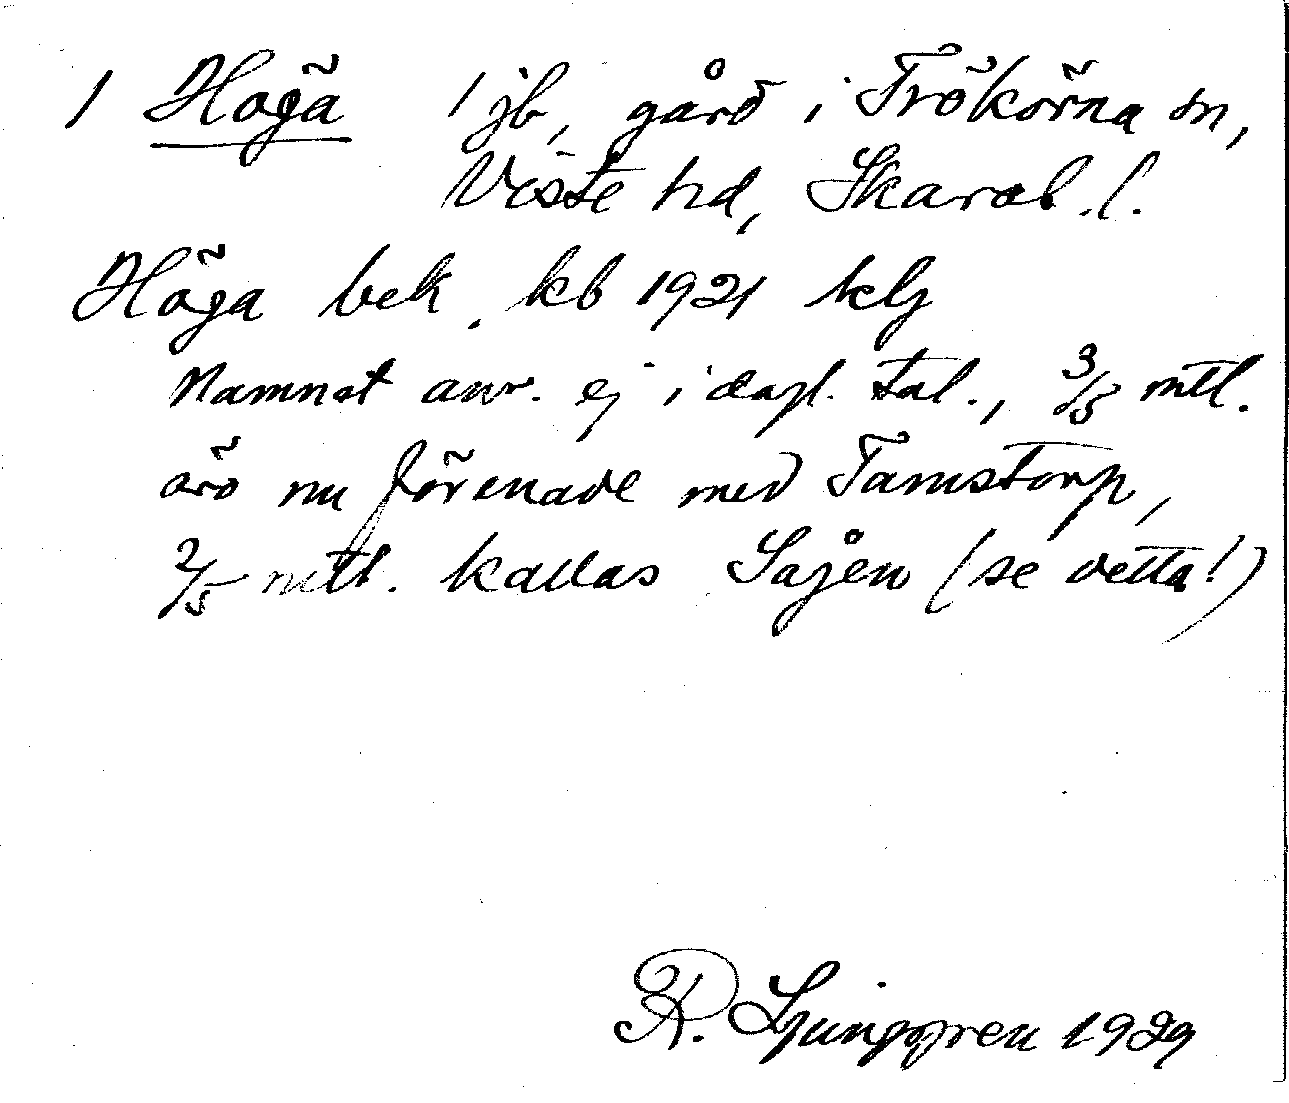 1 Högä 1 jb, gård i Trökörna sn,
Viste hd, Skarab. l.
Höga bek. kb 1921 klj
Namnet anv. ej i dagl. tal., 3/5 mtl.
äro nu förenade med Tamstorp,
2/5 mtl. kallas Sågen (se detta!)
R. Ljunggren 1929